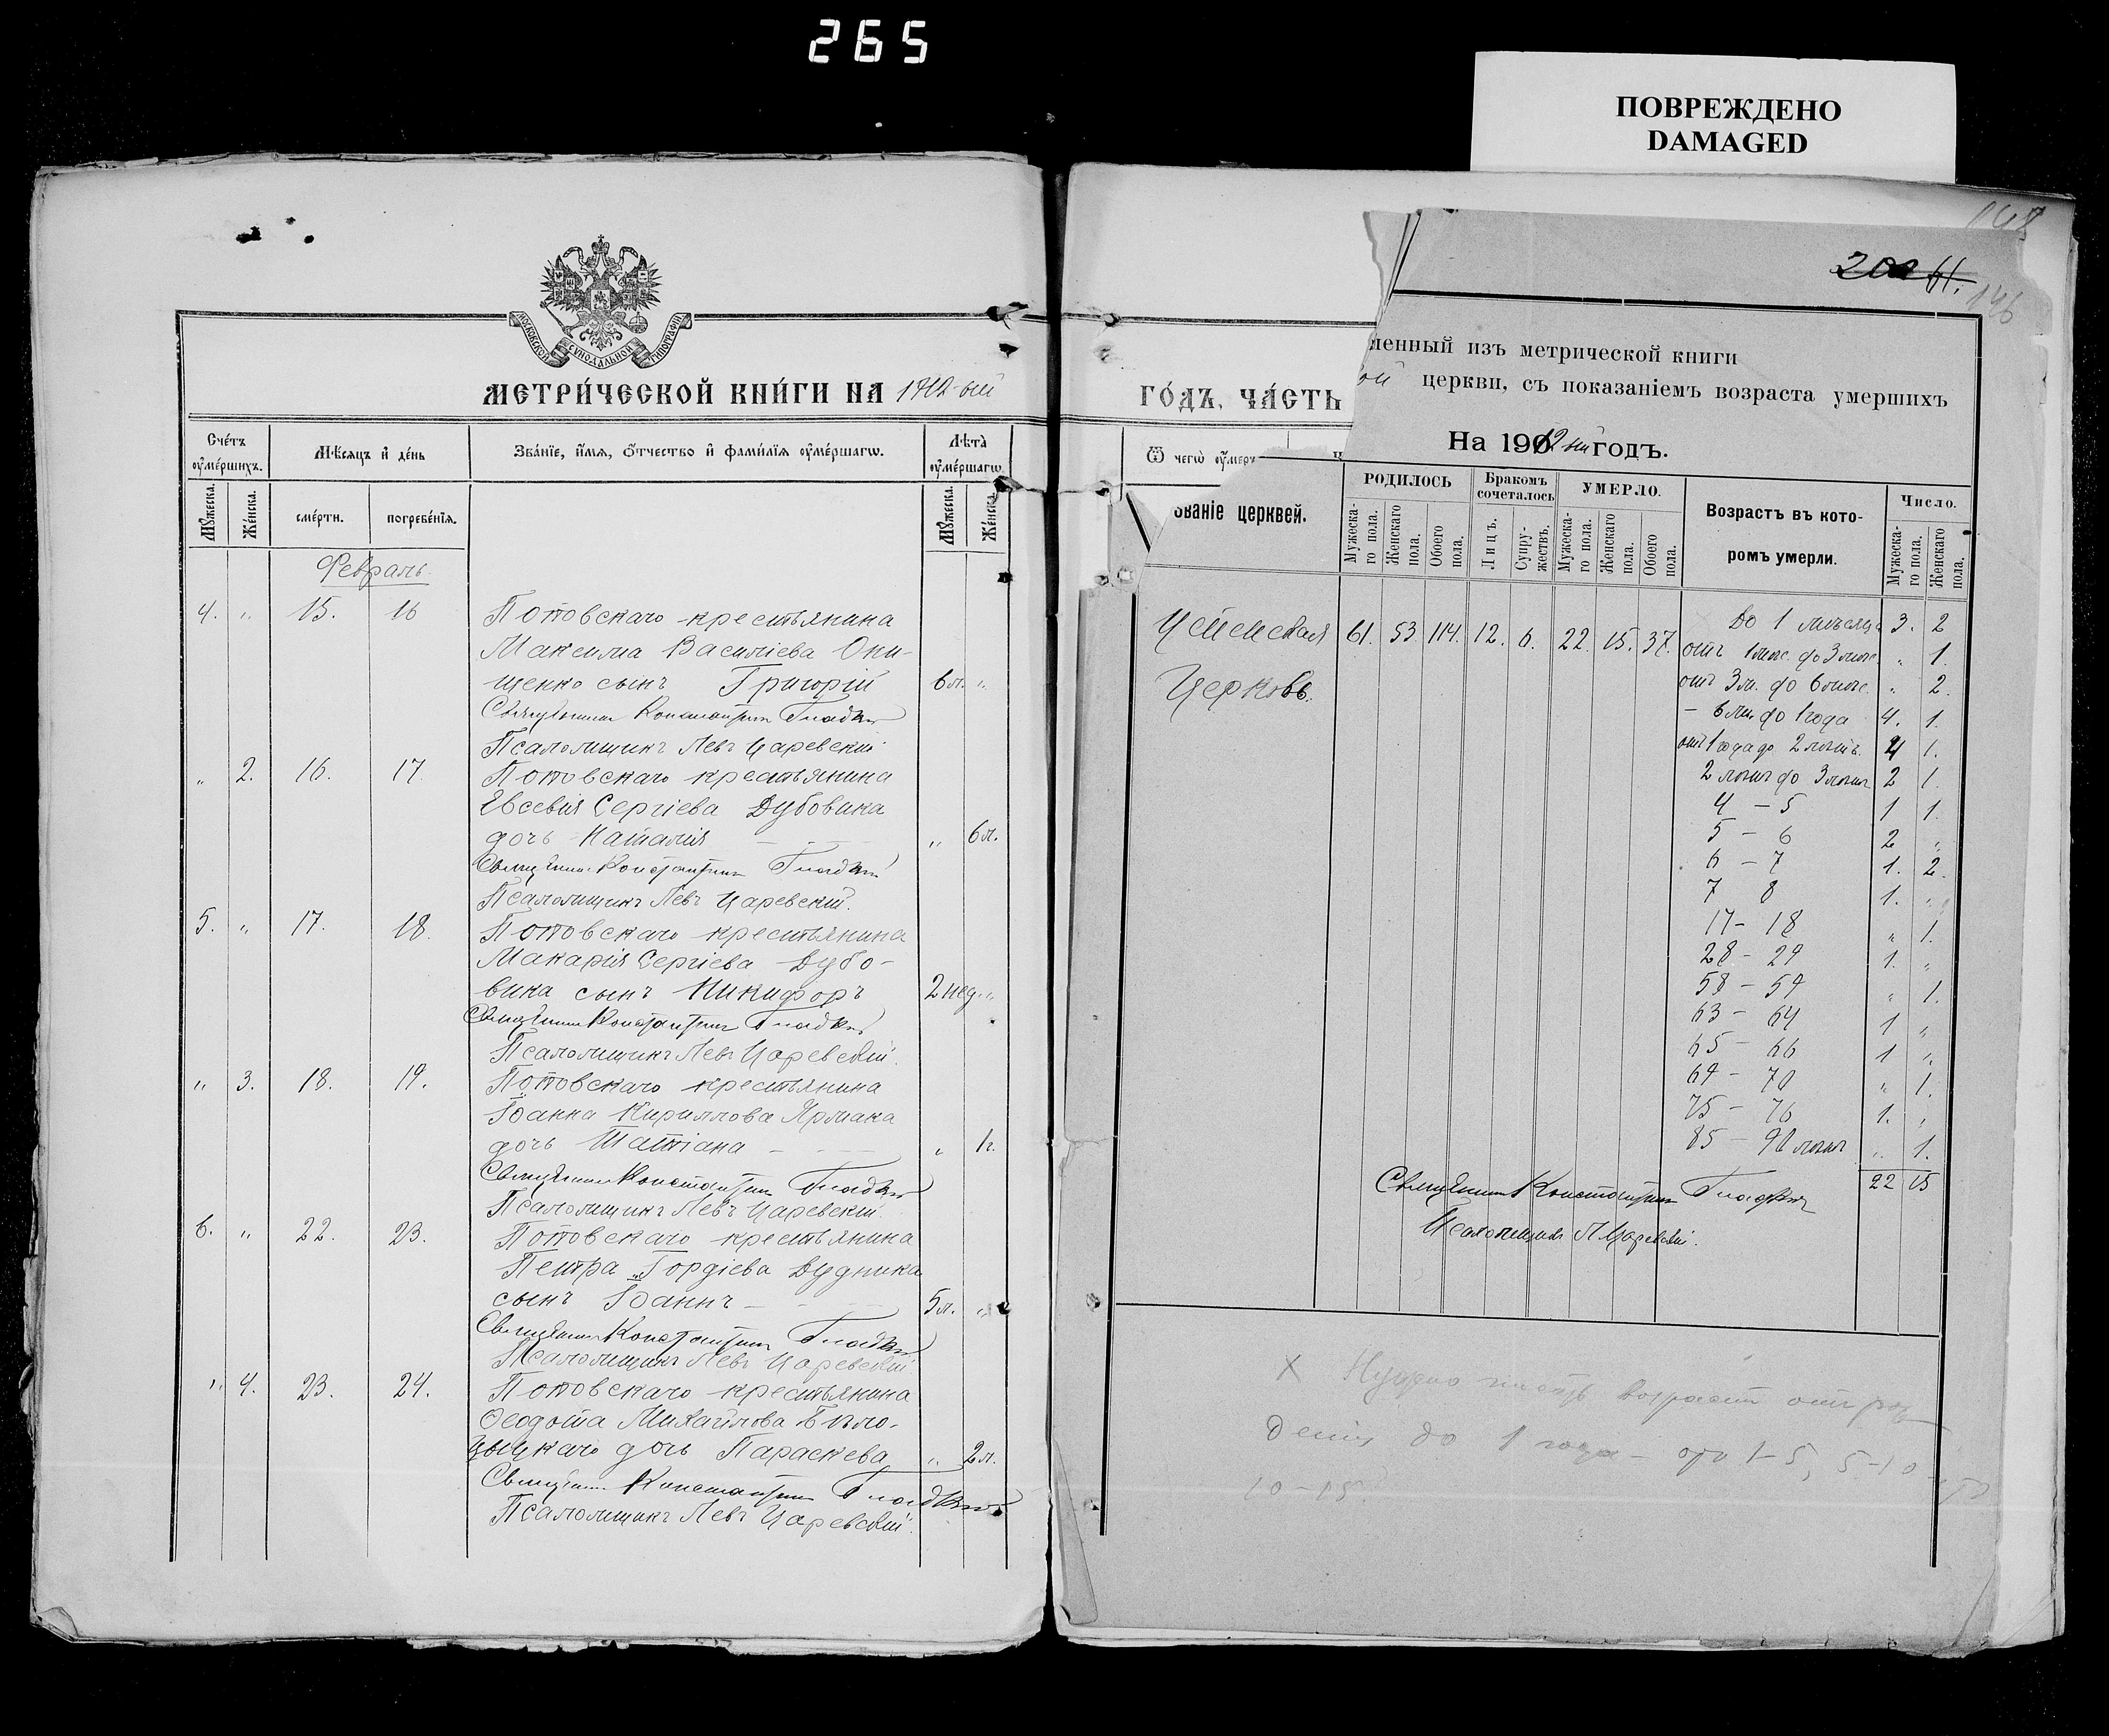 265
ПОВРЕЖДЕНО
DAMAGED
МОСКОВСКОЙ СѴНОДАЛЬНОЙ ТИПОГРАФІИ
МЕТРИ́ЧЕСКОЙ КНИ́ГИ НА 1912-ый
Сче́тъ ᲂумершихъ.
Мѣсяцъ и҆ де́нь
Зва́нїе, и҆́мя, ѻ҆́тчество и҆ фами́лїя ᲂу҆ме́ршагѡ.
Лѣта̀ ᲂу҆ме́ршагѡ.
Мꙋжеска.
Же́нска.
сме́рти.
погребе́нїя.
Мꙋжеска.
Же́нска.
Февраль
4. " 15. 16 Поповскаго крестьянина
Максима Василіева Они-
щенко сынъ Григорій 6 л. "
Священникъ Константинъ Гладкій
Псаломщикъ Левъ Царевскій
" 2. 16. 17. Поповскаго крестьянина
Евсевія Сергіева Дубовика
дочь Наталія " 6 л.
Священникъ Константинъ Гладкій
Псаломщикъ Левъ Царевскій.
5. " 17. 18. Поповскаго крестьянина
Макарія Сергіева Дубо-
вика сынъ Никифоръ 2 нед. "
Священникъ Константинъ Гладкій
Псаломщикъ Левъ Царевскій.
" 3. 18. 19. Поповскаго крестьянина
Іоанна Кириллова Ярмака
дочь Татіана " 1 г.
Священникъ Константинъ Гладкій
Псаломщикъ Левъ Царевскій.
6. " 22. 23. Поповскаго крестьянина
Петра Гордіева Дудника
сынъ Іоаннъ 5 л. "
Священникъ Константинъ Гладкій
Псаломщикъ Левъ Царевскій
" 4. 23. 24. Поповскаго крестьянина
Ѳеодота Михайлова Бѣло-
дочь Параскева " 2 л.
Священникъ Константинъ Гладкій
Псаломщикъ Левъ Царевскій.
ГО́ДЪ, ЧА́СТЬ
Ѿ чегѡ̀ ᲂу҆мер
146
ленный изъ метрической книги
ой церкви, съ показаніемъ возраста умершихъ
На 1912 ый годъ.
ованіе церквей.
РОДИЛОСЬ
Бракомъ сочеталось
УМЕРЛО.
Возрастъ въ кото-
ромъ умерли.
Число.
Мужеска-го пола.
Женскаго пола.
Обоего пола.
Лицъ.
Супру-жествъ.
Мужеска-го пола.
Женскаго пола.
Обоего пола.
Мужеска-го пола.
Женскаго пола.
61. 53 114. 12. 6. 22. 15. 37.
Церковь.
До 1 мѣсяца 3. 2
отъ 1 мѣс. до 3 мѣс. " 1.
отъ 3 м. до 6 мѣс. " 2.
– 6 м. до 1 года 4. 1.
отъ 1 года до 2 лѣтъ. 4 1.
2 лѣтъ до 3 лѣтъ 2 1.
4 – 5 1 1.
5 – 6 2 "
6 – 7 1. 2.
7 8 1. "
17 – 18 " 1.
28 – 29 1. "
58 – 59 " 1.
63 – 64 1 "
65 – 66 1 "
69 – 70 " 1.
75 – 76 1. "
85 – 90 лѣтъ " 1.
22 15
Священникъ Константинъ Гладкій
Псаломщикъ Л. Царевскій.
X Нужно писать возрастъ отъ рож
денія до 1 года – отъ 1–5, 5–10
10–15